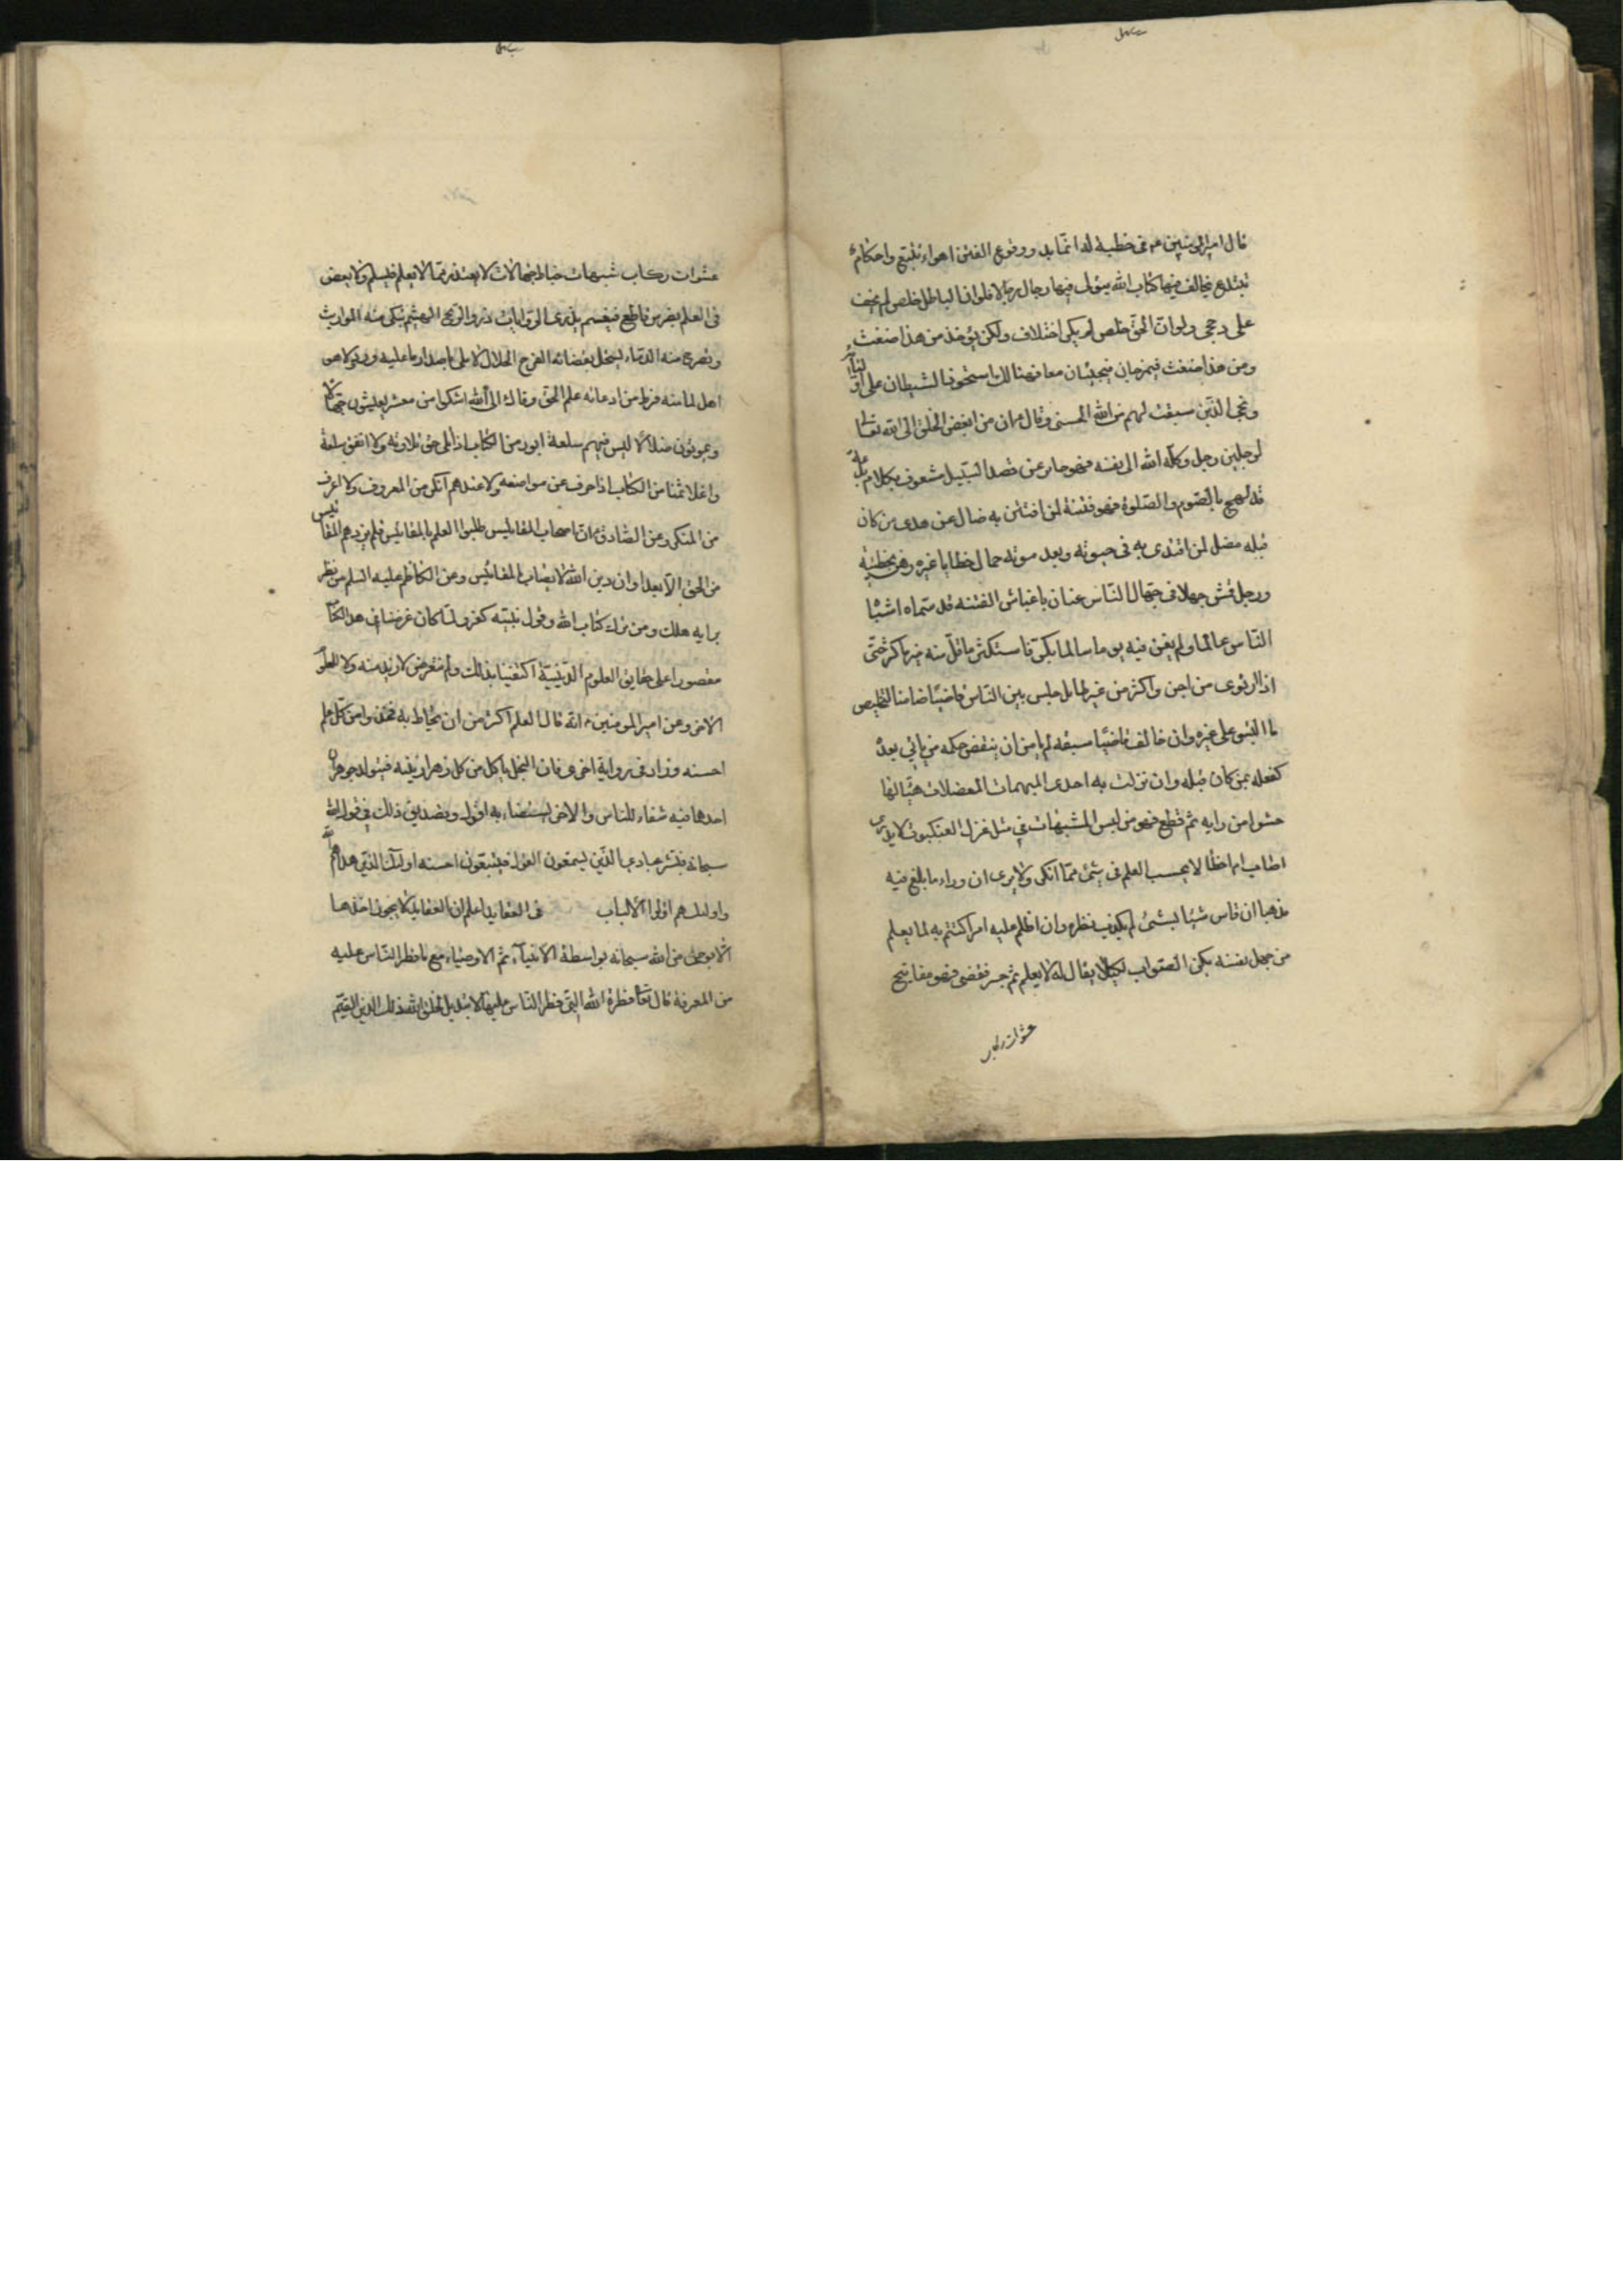 قال امير المومنين ع في خطبة له انما بدو وقوع الفتن اهواء تتبع واحكام
تبتدع يخالف فيها كتاب الله يتولى فيها رجال رجالا فلو ان الباطل خلص لم يخف
على ذي حجى ولو ان الحق خلص لم يكن اختلاف ولكن يؤخذ من هذا ضغث
ومن هذا ضغث فيمزجان فيجيئان معا فهنالك استحوذ الشيطان على اوليائه
ونجى الذين سبقت لهم من الله الحسنى وقال ع ان من ابغض الخلق الى الله تعالى
لرجلين رجل وكله الله الى نفسه فهو جاير عن قصد السبيل مشعوف بكلام بدعة
قد لهج بالصوم والصلوة فهو فتنة لمن افتتن به ضال عن هدى من كان
قبله مضل لمن اقتدى به في حيوته وبعد موته حمال خطايا غيره رهن بخطيئته
ورجل قمش جهلا في جهال الناس عان باغباش الفتنة قد سماه اشباه
الناس عالما ولم يغن فيه يوما سالما بكر فاستكثر ما قل منه خير مما كثر حتى
اذا ارتوى من اجن واكثر من غير طايل جلس بين الناس قاضيا ضامنا لتخليص
ما التبس على غيره وان خالف قاضيا سبقه لم يامن ان ينقض حكمه من ياتي بعده
كفعله بمن كان قبله وان نزلت به احدى المبهمات المعضلات هيأ لها
حشوا من رايه ثم قطع فهو من لبس الشبهات في مثل غزل العنكبوت لا يدرى
اصاب ام اخطا لا يحسب العلم في شئ مما انكر ولا يرى ان وراء ما بلغ فيه
مذهبا ان قاس شيئا بشئ لم يكذب نظره وان اظلم عليه امر اكتتم به لما يعلم
من جهل نفسه لكيلا يقال له لا يعلم ثم جسر فقضى فهو مفاتيح
عشوات ركاب
عشوات ركاب شبهات خباط جهالات لا يعتذر مما لا يعلم فيسلم ولا يعض
في العلم بضرس قاطع فيغنم يذرى الروايات ذرو الريح الهشيم تبكى منه المواريث
وتصرخ منه الدماء يستحل بقضائه الفرج الحلال لا ملئ باصدار ما عليه ورد ولا هو
اهل لما منه فرط من ادعائه علم الحق وقال الى الله اشكو من معشر يعيشون جهالا
ويموتون ضلالا ليس فيهم سلعة ابور من الكتاب اذا تلى حق تلاوته ولا انفق سلعة
واغلا ثمنا من الكتاب اذا حرف عن مواضعه ولا عندهم انكر من المعروف ولا اعرف
من المنكر وعن الصادق ع ان اصحاب المقائيس طلبوا العلم بالمقائيس فلم يزدهم المقائيس
من الحق الا بعدا وان دين الله لا يصاب بالمقائيس وعن الكاظم عليه السلم من نظر
برايه هلك ومن ترك كتاب الله وقول نبيه كفر ولما كان غرضنا في هذا الكتاب
مقصورا على حقايق العلوم الدينية اكتفينا بذلك ولم نتعرض لازيد منه ولا للعلوم
الاخر وعن امير المومنين ع انه قال العلم اكثر من ان يحاط به فخذوا من كل علم
احسنه وزاد في رواية اخرى فان النحل ياكل من كل زهر ازينه فيتولد جوهران
احدهما فيه شفاء للناس والاخر يستضاء به اقول وتصديق ذلك في قول الله
سبحانه فبشر عبادي الذين يستمعون القول فيتبعون احسنه اولئك الذين هداهم الله
واولئك هم اولوا الالباب في العقايد اعلم ان العقايد لا يجوز اخذها
الا بوحى من الله سبحانه بواسطة الانبياء ثم الاوصياء مع ما فطر الناس عليه
من المعرفة قال تعالى فطرة الله التي فطر الناس عليها لا تبديل لخلق الله ذلك الدين القيم